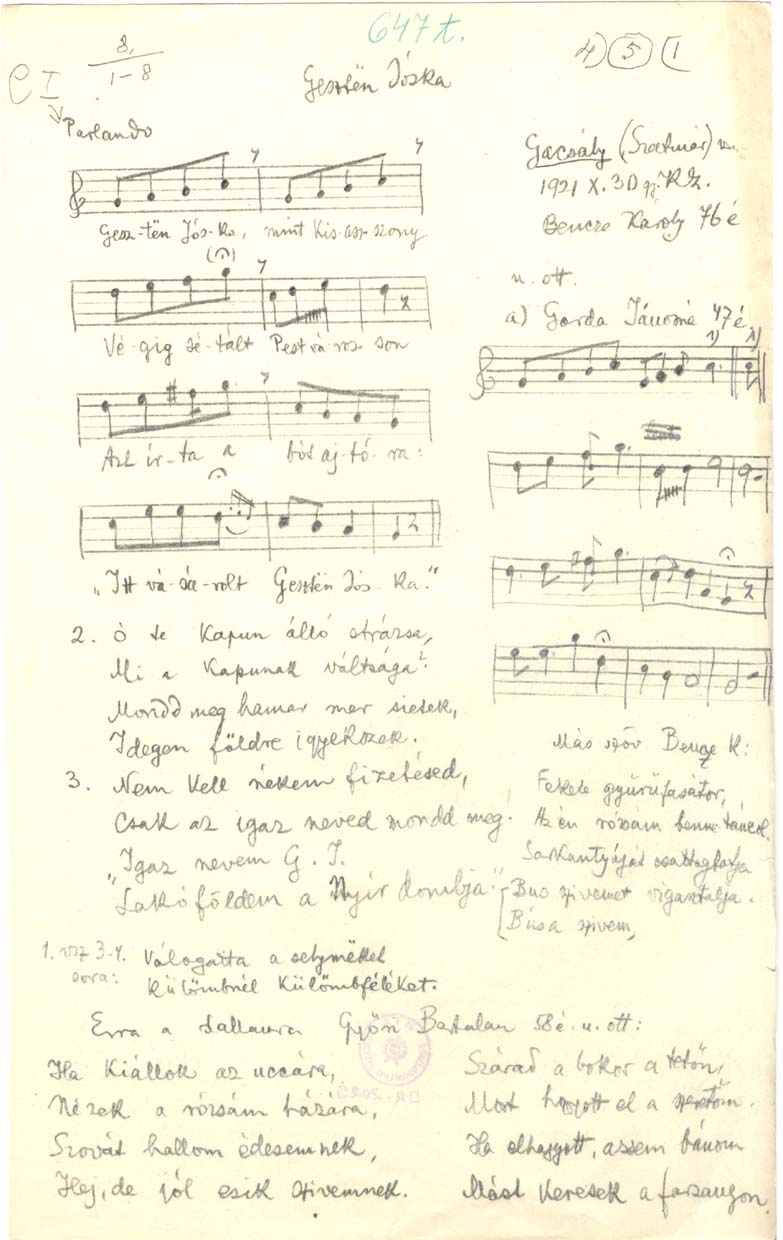 647 t.
8,
1-8
4) 5 (1
C I
Gesztën Jóska
Parlando
Gesz-tën Jós-ka, mint kis-asz-szony
Vé-gig sé-tált Pest vá-ros-son
Azt ír-ta a bót aj-tó-ra:
"Itt vá-sá-rolt Gesztën Jós-ka."
Gacsály (Szatmár) vm.
1921 X. 30 gy. K Z.
Bencze Károly 76 é
u. ott.
a) Gorda Jánosné 47 é
1) 1)
2. Ó te kapun álló strázsa,
Mi a kapunak váltsága?
Mondd meg hamar mer sietek,
Idegen földre igyekszek.
3. Nem kell nékem fizetésed,
Csak az igaz neved mondd még.
"Igaz nevem G. J.
"Lakóföldem a Nyír dombja."
Más szöv Bencze K:
Fekete gyűrűfasátor,
Az én rózsám benne táncol.
Sarkantyáját csattogtatja
Bús szivemet vigasztalja.
Búsa szivem,
1. vsz 3-4. sora: Válogatta a selymëket
Külömbnél külömbféléket.
Erre a dallamra Győri Bertalan 58 é. u. ott:
Ha kiállok az uccára,
Nézek a rózsám házára,
Szovát hallom édesemnek,
Hej, de jól esik szivemnek.
Szárad a bokor a tetőn,
Most hagyott el a szeretőm.
Ha elhagyott, aszsem bánom
Mást keresek a farsangon.